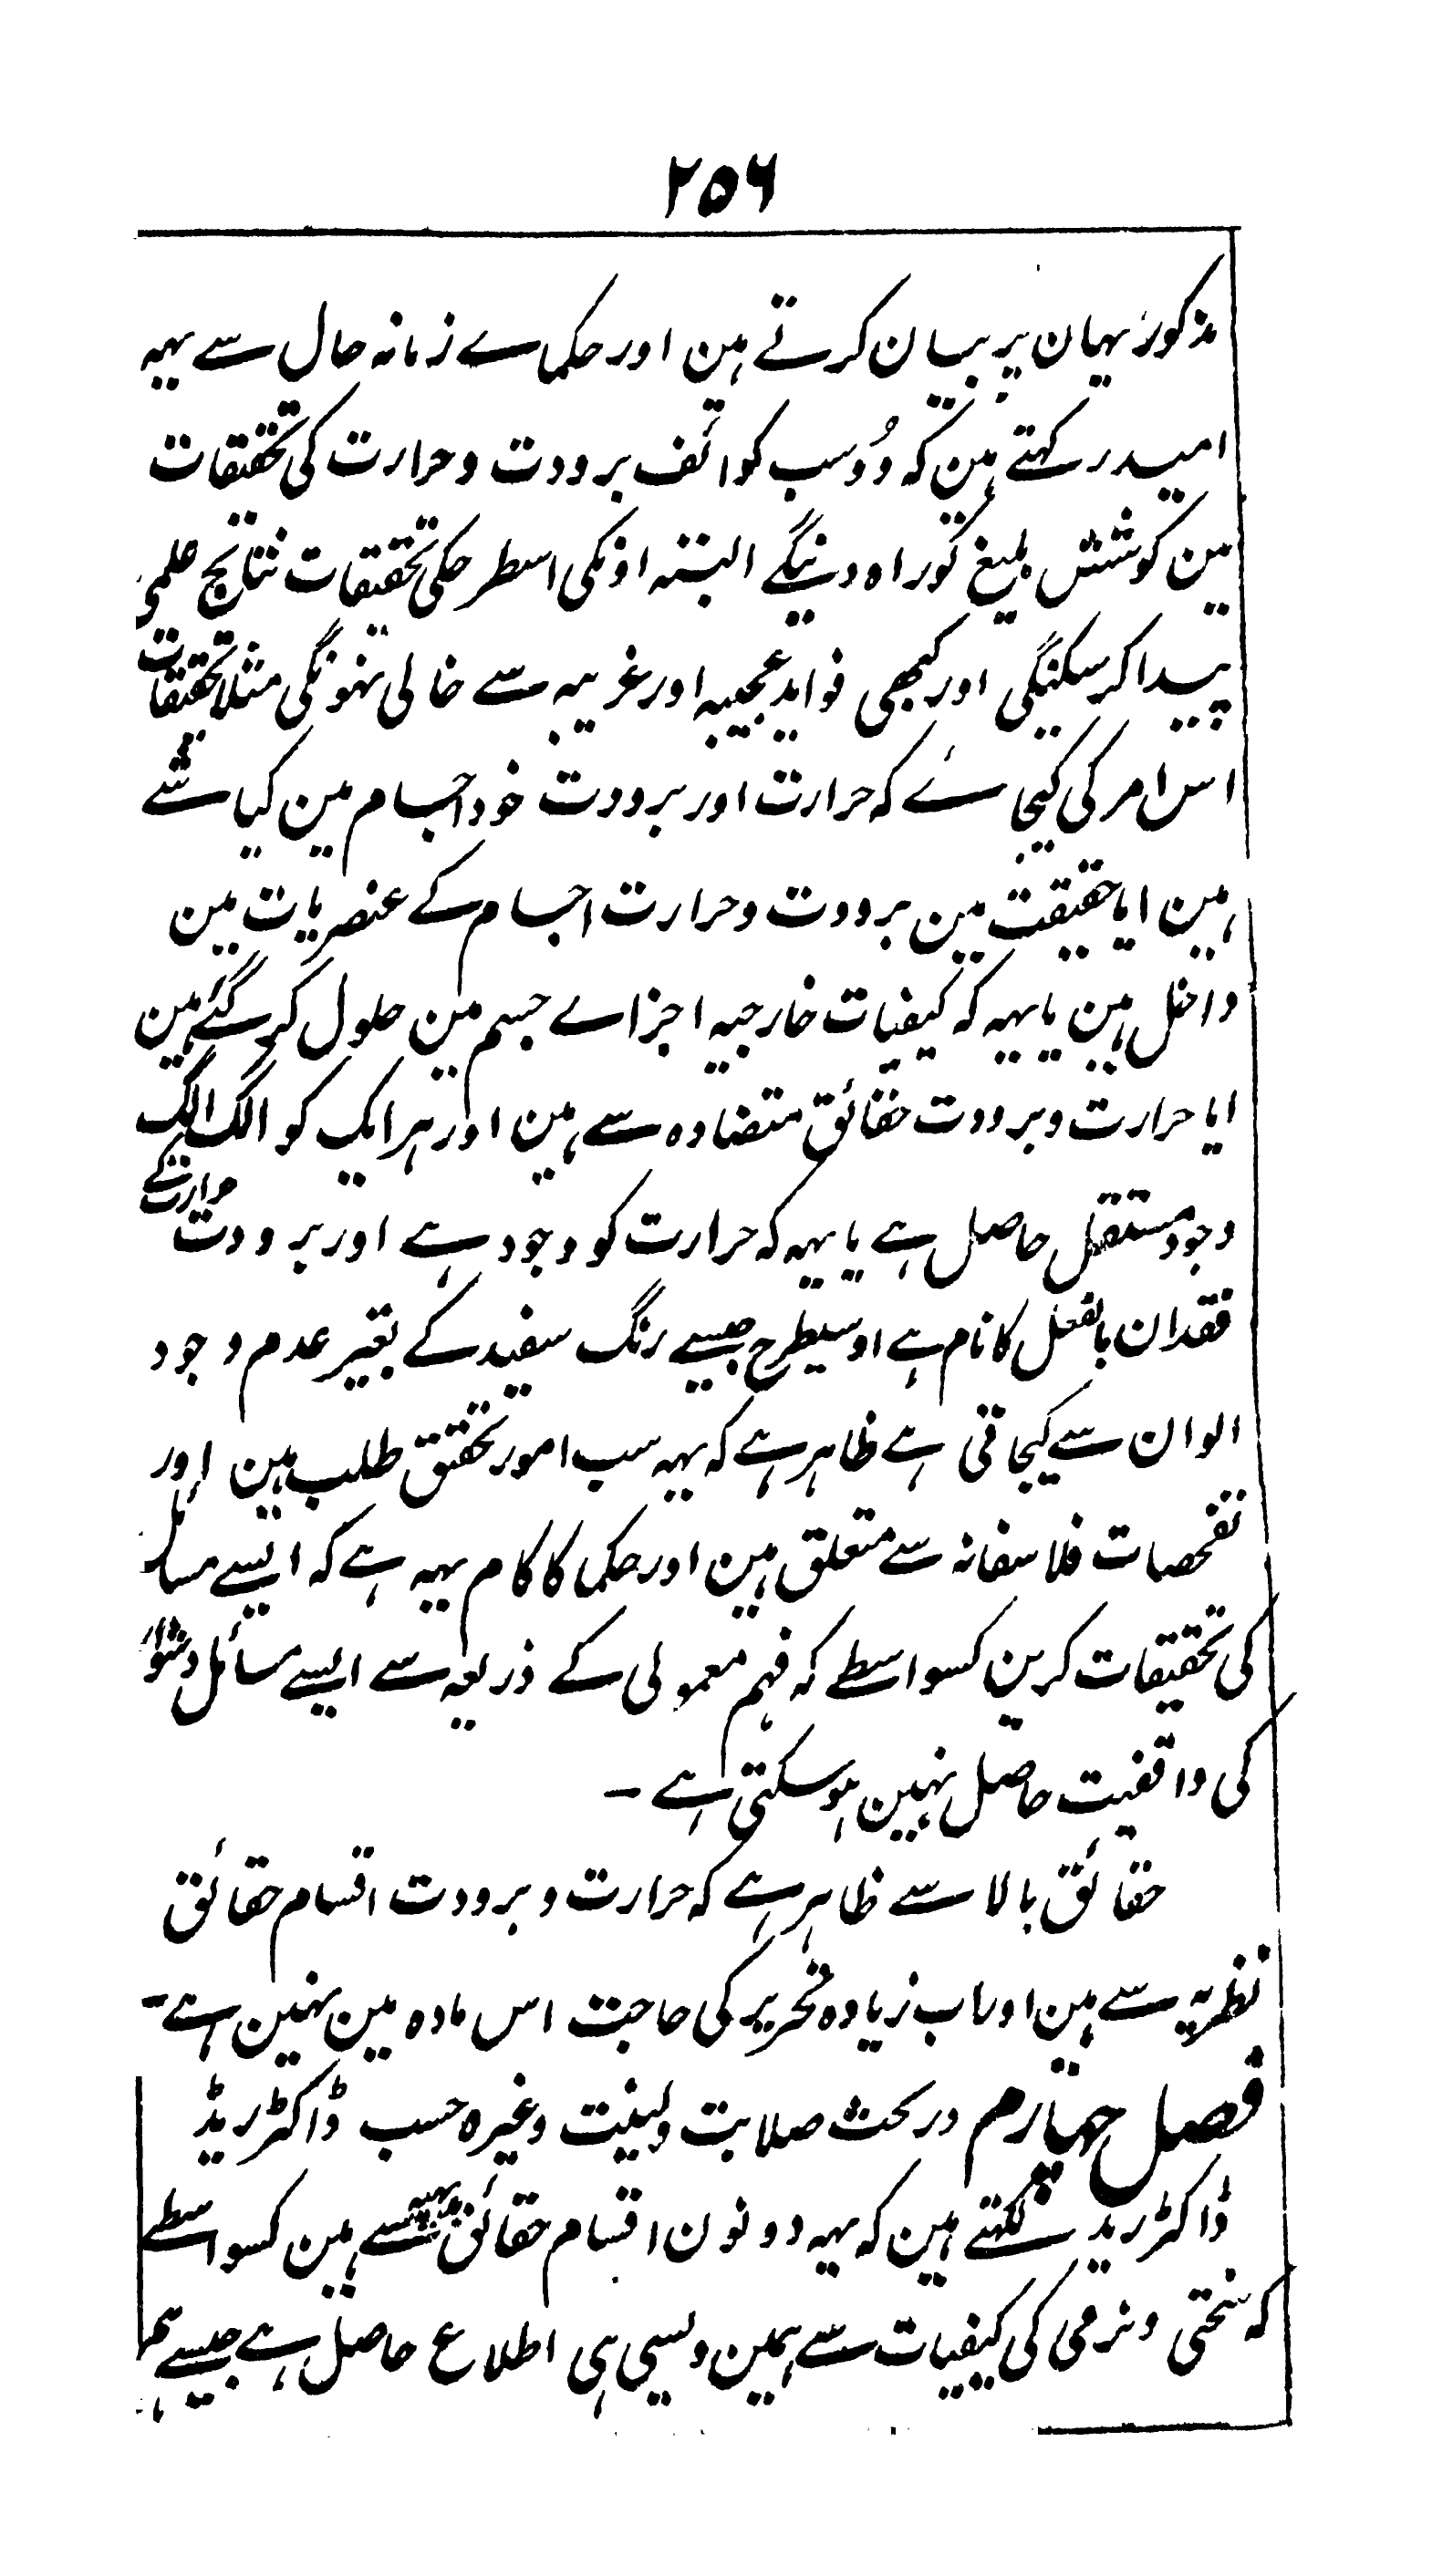 ۲۵۶
مذکور یہان پر بیان کرتے ہین اور حکماے زمانہ حال سے یہہ
امید رکہتے ہین کہ وُہ سب کوائف برودت و حرارت کی تحقیقات
مین کوشش بلیغ کو راہ دینگے البتہ اونکی اسطرحکی تحقیقات نتایج علمی
پیدا کرسکینگی اور کبھی فواید عجیبہ اور غریبہ سے خالی نہونگی مثلا تحقیقات
اس امر کی کیجاے کہ حرارت اور برودت خود اجسام مین کیا شے
ہین ایا حقیقت مین برودت و حرارت اجسام کے عنصریات مین
داخل ہین یا یہہ کہ کیفیات خارجیہ اجزاے جسم مین حلول کر گئے ہین
ایا حرارت و برودت حقائق متضادہ سے ہین اور ہر ایک کو الگ الگ
وجود مستقل حاصل ہے یا یہہ کہ حرارت کو وجود ہے اور برودت حرارت کے
فقدان بالفعل کا نام ہے اوسیطرح جیسے رنگ سفید کے بتعبیر عدم وجود
الوان سے کیجاتی ہے ظاہر ہے کہ یہہ سب امور تحقیق طلب ہین اور
تفحصات فلاسفانہ سے متعلق ہین اور حکما کا کام یہہ ہے کہ ایسے مسائل
کی تحقیقات کرین کسواسطے کہ فہم معمولی کے ذریعہ سے ایسے مسائل دشوار
کی واقفیت حاصل نہین ہوسکتی ہے ۔
حقائق بالا سے ظاہر ہے کہ حرارت و برودت اقسام حقائق
نظریہ سے ہین اور اب زیادہ تحریر کی حاجت اس مادہ مین نہین ہے ۔
فصل چہارم در بحث صلابت و لینت وغیرہ حسب ڈاکٹر ریڈ
ڈاکٹر ریڈ لکہتے ہین کہ یہہ دونون اقسام حقائق بدیہیہ سے ہین کسواسطے
کہ سختی و نرمی کی کیفیات سے ہمین ویسی ہی اطلاع حاصل ہے جیسے ہم